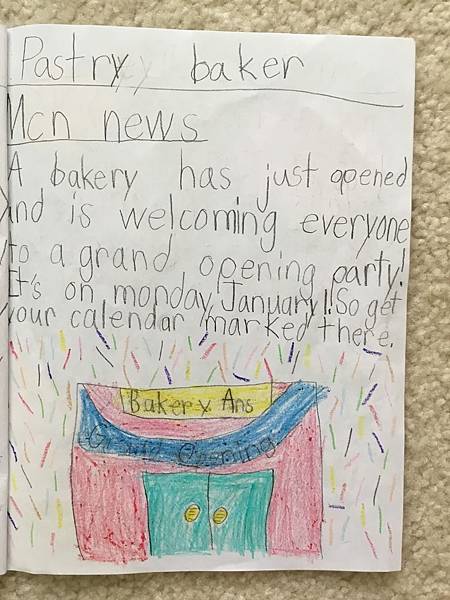 Pastry baker
Mcn news
A bakery has just opened
and is welcoming everyone
to a grand opening party!
It's on monday, January 1! So get
your calendar marked there.
Bakery Ans
Grand Opening